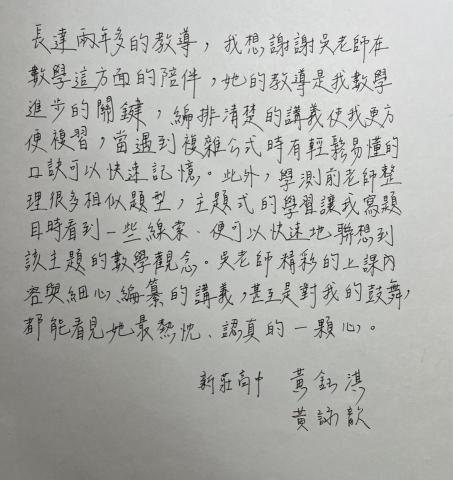 長達兩年多的教導，我想謝謝吳老師在
數學這方面的陪伴，她的教導是我數學
進步的關鍵，編排清楚的講義使我更方
便複習，當遇到複雜公式時有輕鬆易懂的
口訣可以快速記憶。此外，學測前老師整
理很多相似題型，主題式的學習讓我寫題
目時看到一些線索、便可以快速地聯想到
該主題的數學觀念。吳老師精彩的上課內
容與細心編纂的講義，甚至是對我的鼓舞，
都能看見她最熱忱、認真的一顆心。
新莊高中 黃鈺淇
黃詠歆